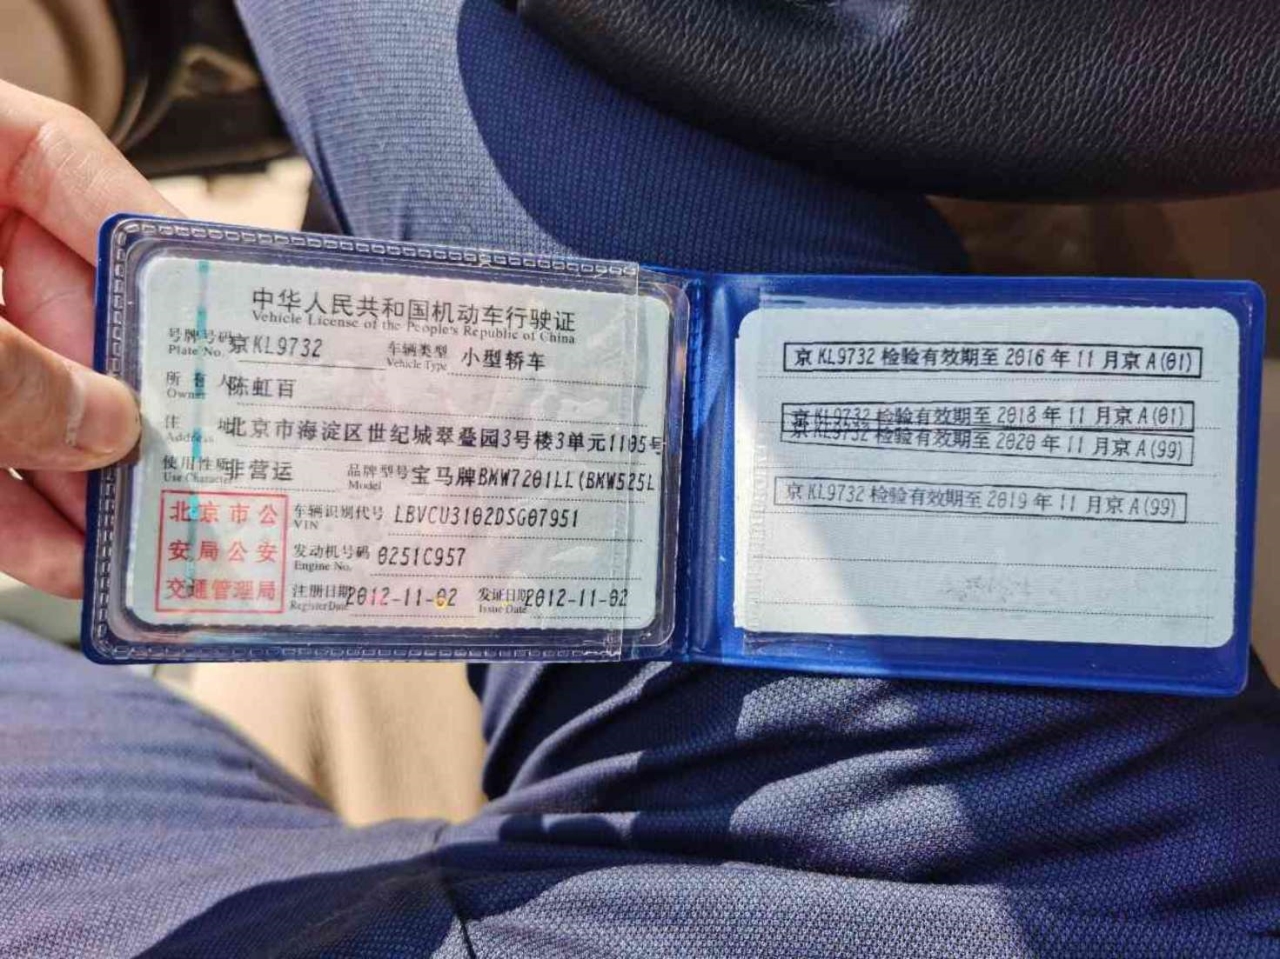 中华人民共和国机动车行驶证
Vehicle License of the People's Republic of China
号牌号码 京KL9732 车辆类型 小型轿车
Plate No. Vehicle Type
所有人 陈虹百
Owner
住 址 北京市海淀区世纪城翠叠园3号楼3单元1105号
Address
使用性质 非营运 品牌型号 宝马牌BMW7201LL(BMW525L
Use Character Model
北京市公
安局公安
交通管理局
车辆识别代号 LBVCU3102DSG07951
VIN
发动机号码 0251C957
Engine No.
注册日期 2012-11-02 发证日期 2012-11-02
Register Date Issue Date
京KL9732检验有效期至2016年11月京A(01)
京KL9732检验有效期至2018年11月京A(01)
京KL9732检验有效期至2020年11月京A(99)
京KL9732检验有效期至2019年11月京A(99)